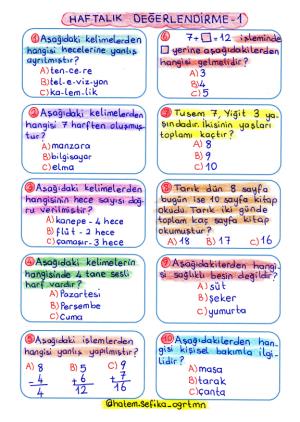 HAFTALIK DEĞERLENDİRME-1
1 Aşağıdaki kelimelerden
hangisi hecelerine yanlış
ayrılmıştır?
A) ten-ce-re
B) tel-e-viz-yon
C) ka-lem-lik
2 Aşağıdaki kelimelerden
hangisi 7 harften oluşmuş-
tur?
A) manzara
B) bilgisayar
C) elma
3 Aşağıdaki kelimelerden
hangisinin hece sayısı doğ-
ru verilmiştir?
A) kanepe - 4 hece
B) flüt - 2 hece
C) çamaşır - 3 hece
4 Aşağıdaki kelimelerin
hangisinde 4 tane sesli
harf vardır?
A) Pazartesi
B) Perşembe
C) Cuma
5 Aşağıdaki işlemlerden
hangisi yanlış yapılmıştır?
A) 8 B) 5 C) 9
- 4 + 6 + 7
4 12 16
6 7+□=12 işleminde
□ yerine aşağıdakilerden
hangisi gelmelidir?
A) 3
B) 4
C) 5
7 Tusem 7, Yiğit 3 ya-
şındadır. İkisinin yaşları
toplamı kaçtır?
A) 8
B) 9
C) 10
8 Tarık dün 8 sayfa
bugün ise 10 sayfa kitap
okudu. Tarık iki günde
toplam kaç sayfa kitap
okumuştur?
A) 18 B) 17 C) 16
9 Aşağıdakilerden hangi-
si sağlıklı besin değildir?
A) süt
B) şeker
C) yumurta
10 Aşağıdakilerden han-
gisi kişisel bakımla ilgi-
lidir?
A) masa
B) tarak
C) çanta
@hatem.sefika_ogrtmn